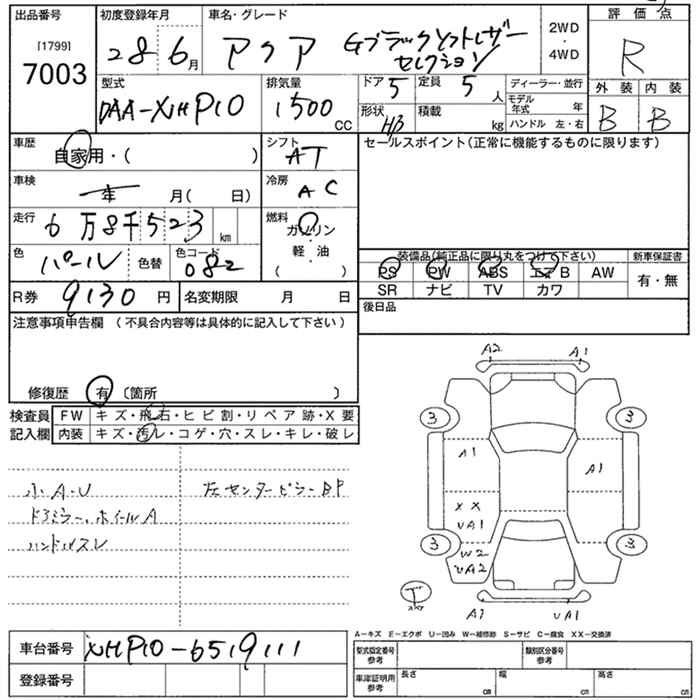 出品番号
[1799]
7003
初度登録年月
28 6月
車名・グレード
アクア Gブラックソフトレザー
セレクション
2WD
・
4WD
評価点
R
外装 内装
B B
型式
DAA-NHP10
排気量
1500
CC
ドア 5
定員 5
人
形状 H/B
積載
kg
ディーラー・並行
モデル
年式 年
ハンドル 左・右
車歴
自家用・( )
シフト
AT
セールスポイント(正常に機能するものに限ります)
車検
年 月( 日)
冷房
AC
走行
6万8千523
km
燃料
ガソリン
・
軽・油
( )
色
パール
色替
色コード
082
装備品(純正品に限り丸をつけて下さい)
PS PW ABS エアB AW
SR ナビ TV カワ
新車保証書
有・無
R券 9130 円
名変期限 月 日
後日品
注意事項申告欄 (不具合内容等は具体的に記入して下さい)
修復歴 有 〔箇所 〕
検査員
記入欄
FW キズ・飛石・ヒビ割・リペア跡・X要
内装 キズ・汚レ・コゲ・穴・スレ・キレ・破レ
小A・U
左センターピラーBP
ドアミラー、ホイールA
ハンドルスレ
A2 A1
3 3
A1
A1
XX
UA1
3 3
W2
UA2
T
A1 UA1
A-キズ E-エクボ U-凹み W-補修跡 S-サビ C-腐食 XX-交換済
車台番号 NHP10-6519111
登録番号
型式指定番号
参考
類別区分番号
参考
車庫証明用
参考
長さ cm
幅 cm
高さ cm